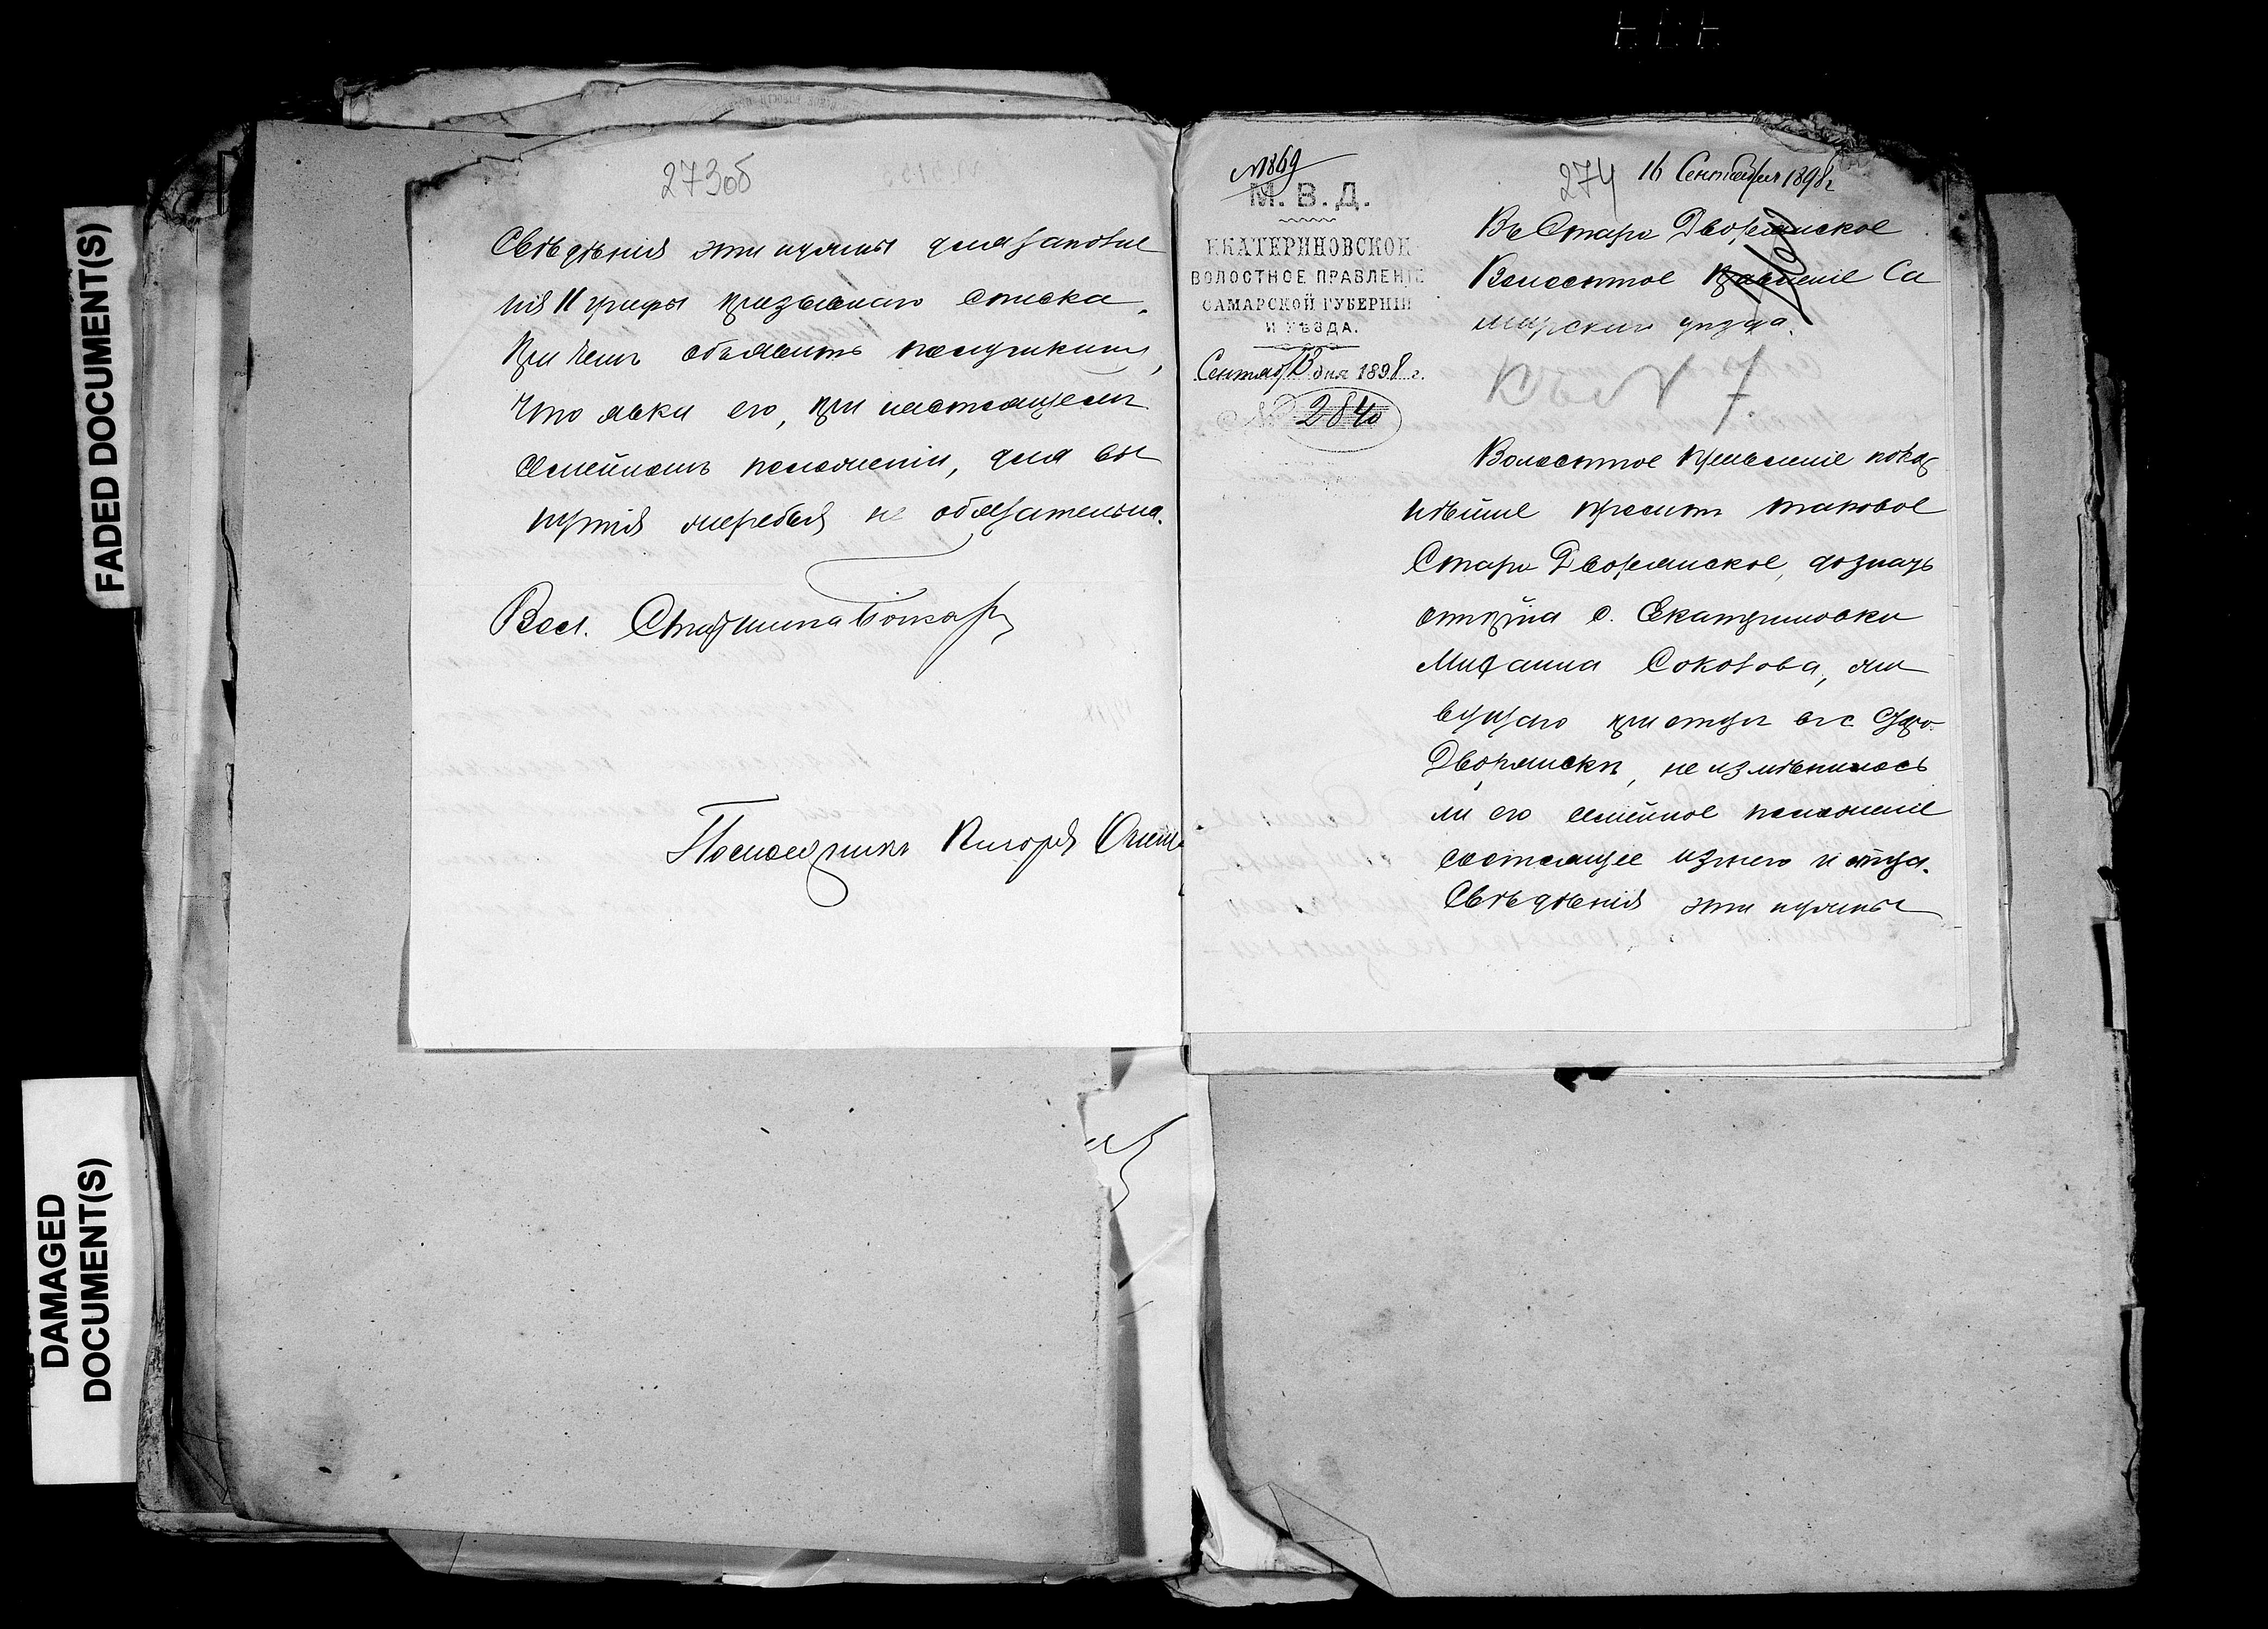 FADED DOCUMENT(S)
DAMAGED
DOCUMENT(S)
273об
Свѣдѣнія эти нужны для заполне
нія 11 графы призывнаго списка.
При чемъ объявить получикину,
что явки его, при настоящемъ
семейномъ положеніи, для вы
нутія жеребья не обязательна.
Вол. Старшина
№ 1869
М. В. Д.
ЕКАТЕРИНОВСКОЕ
ВОЛОСТНОЕ ПРАВЛЕНІЕ
САМАРСКОЙ ГУБЕРНІИ
И УѢЗДА.
Сентяб 13 дня 1898 г.
№ 2840
274
16 Сентября 1898 г
Въ Старо Дворянское
Волостное Правленіе Са
марскаго уѣзда.
Къ № 7.
Волостное Правленіе покор
нѣйше проситъ таковое
Старо Дворянское, дознать
с. Екатериновки
Михаила Соколова, жи
вущаго при отцѣ въ с. Старо
Дворянскѣ, не измѣнилось
ли его семейное положеніе
состоящее изъ него и отца.
Свѣдѣнія эти нужны